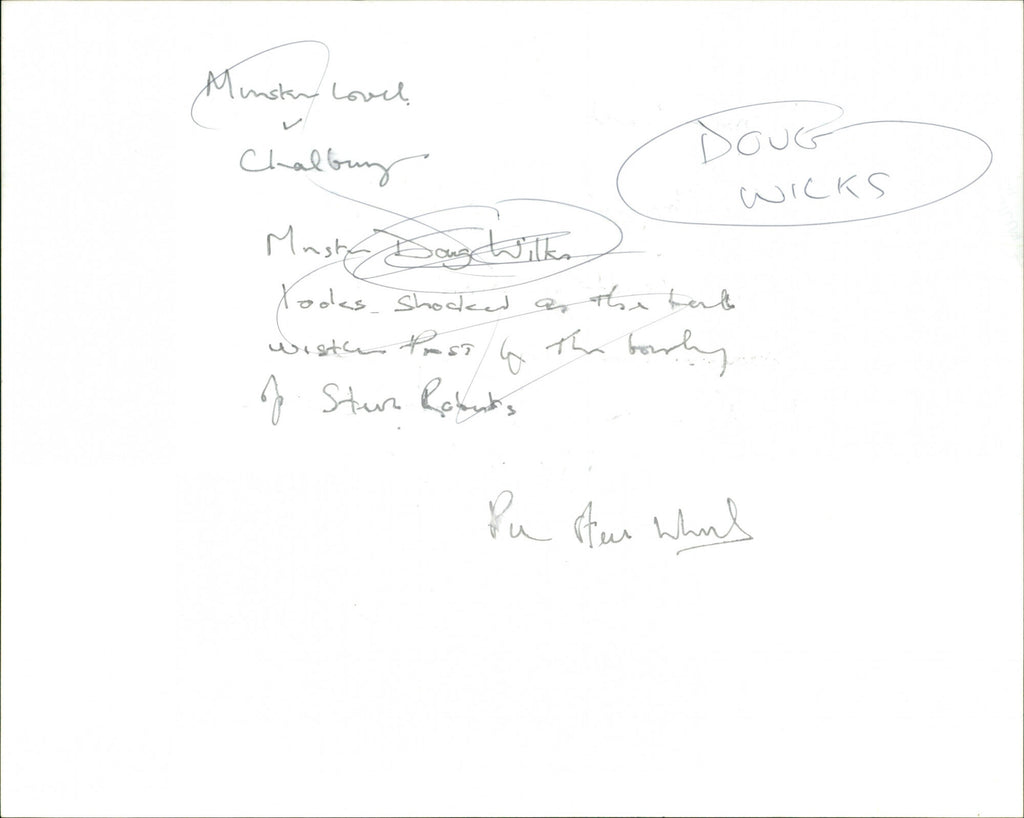 Minster Lovell
v
Chalbury
DOUG
WICKS
Minster Doug Wilks
looks shocked as the ball
wistles Past by the bowling
of Steve Roberts
Pic Steve Wheeler